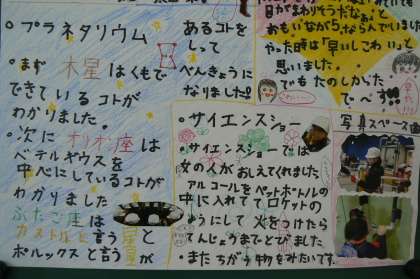 ・プラネタリウム
・まず 木星 はくもで
できている コトが
わかりました。
・次に オリオン座 は
ベテルギウスを
中心にしているコトが
わかりました
ふたご座は
カストルと言う星と
ポルックスと言う星が
あるコトを
しって
べんきょうに
なりました。
日がまわりそうだなぁと
おもいながら、ならんでいました
やった時は「早いしこわい」と
思いました。
でもたのしかった
でーす!!
・サイエンスショー
・サイエンスショーでは
女の人がおしえてくれました。
アルコールをペットボトルの
中に入れてロケットの
ようにして火をつけたら
てんじょうまでとびました
・またちがう物をみたいです。
写真スペース